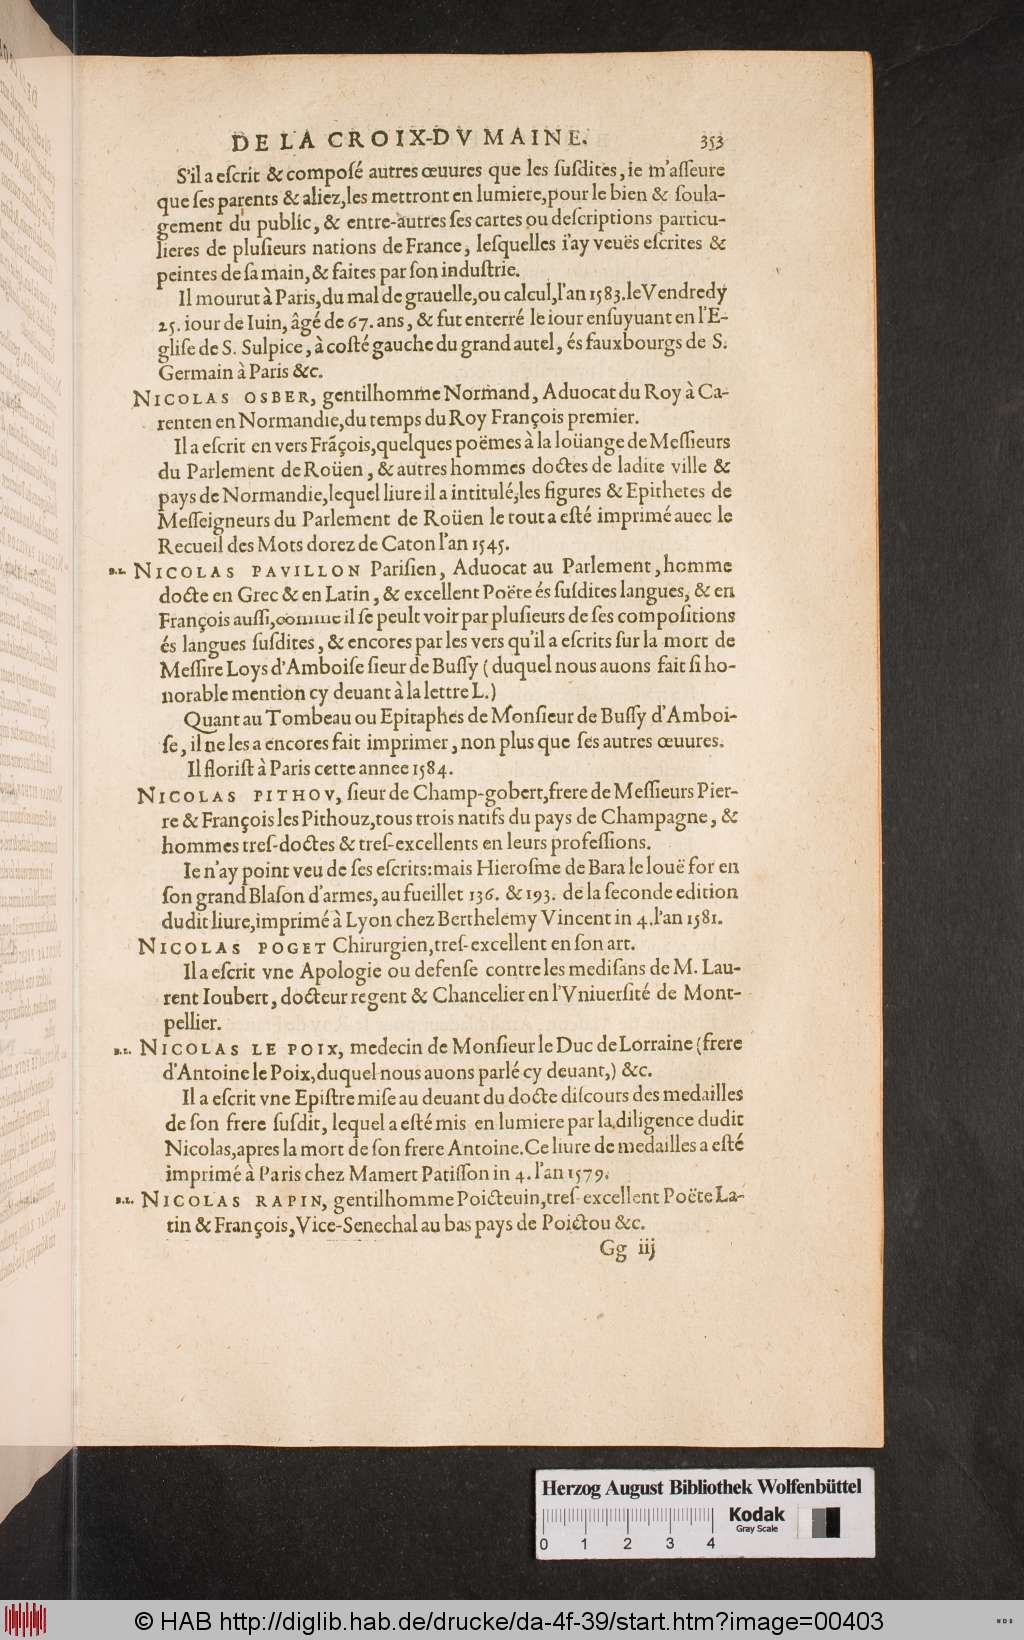 DE LA CROIX-DV MAINE. 353
S'il a eſcrit & compoſé autres œuures que les ſuſdites, ie m'aſſeure
que ſes parents & aliez, les mettront en lumiere, pour le bien & ſoula-
gement du public, & entre-autres ſes cartes ou deſcriptions particu-
lieres de pluſieurs nations de France, leſquelles i'ay veuës eſcrites &
peintes de ſa main, & faites par ſon induſtrie.
Il mourut à Paris, du mal de grauelle, ou calcul, l'an 1583. le Vendredy
25. iour de Iuin, âgé de 67. ans, & fut enterré le iour enſuyuant en l'E-
gliſe de S. Sulpice, à coſté gauche du grand autel, és fauxbourgs de S.
Germain à Paris &c.
NICOLAS OSBER, gentilhomme Normand, Aduocat du Roy à Ca-
renten en Normandie, du temps du Roy François premier.
Il a eſcrit en vers Frãçois, quelques poëmes à la loüange de Meſſieurs
du Parlement de Roüen, & autres hommes doctes de ladite ville &
pays de Normandie, lequel liure il a intitulé, les figures & Epithetes de
Meſſeigneurs du Parlement de Roüen le tout a eſté imprimé auec le
Recueil des Mots dorez de Caton l'an 1545.
B.L. NICOLAS PAVILLON Pariſien, Aduocat au Parlement, homme
docte en Grec & en Latin, & excellent Poëte és ſuſdites langues, & en
François auſſi, comme il ſe peult voir par pluſieurs de ſes compoſitions
és langues ſuſdites, & encores par les vers qu'il a eſcrits ſur la mort de
Meſſire Loys d'Amboiſe ſieur de Buſſy (duquel nous auons fait ſi ho-
norable mention cy deuant à la lettre L.)
Quant au Tombeau ou Epitaphes de Monſieur de Buſſy d'Amboi-
ſe, il ne les a encores fait imprimer, non plus que ſes autres œuures.
Il floriſt à Paris cette annee 1584.
NICOLAS PITHOV, ſieur de Champ-gobert, frere de Meſſieurs Pier-
re & François les Pithouz, tous trois natifs du pays de Champagne, &
hommes treſ-doctes & treſ-excellents en leurs profeſſions.
Ie n'ay point veu de ſes eſcrits: mais Hieroſme de Bara le louë for en
ſon grand Blaſon d'armes, au fueillet 136. & 193. de la ſeconde edition
dudit liure, imprimé à Lyon chez Berthelemy Vincent in 4. l'an 1581.
NICOLAS POGET Chirurgien, treſ-excellent en ſon art.
Il a eſcrit vne Apologie ou defenſe contre les mediſans de M. Lau-
rent Ioubert, docteur regent & Chancelier en l'Vniuerſité de Mont-
pellier.
B.L. NICOLAS LE POIX, medecin de Monſieur le Duc de Lorraine (frere
d'Antoine le Poix, duquel nous auons parlé cy deuant,) &c.
Il a eſcrit vne Epiſtre miſe au deuant du docte diſcours des medailles
de ſon frere ſuſdit, lequel a eſté mis en lumiere par la diligence dudit
Nicolas, apres la mort de ſon frere Antoine. Ce liure de medailles a eſté
imprimé à Paris chez Mamert Patiſſon in 4. l'an 1579.
B.L. NICOLAS RAPIN, gentilhomme Poicteuin, treſ-excellent Poëte La-
tin & François, Vice-Senechal au bas pays de Poictou &c.
Gg iij
Herzog August Bibliothek Wolfenbüttel
Kodak
Gray Scale
0 1 2 3 4
© HAB http://diglib.hab.de/drucke/da-4f-39/start.htm?image=00403